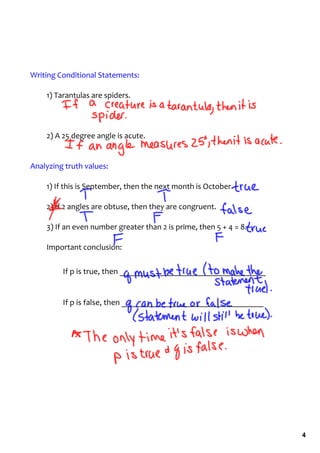 Writing Conditional Statements:
1) Tarantulas are spiders.
If a creature is a tarantula, then it is
spider.
2) A 25 degree angle is acute.
If an angle measures 25°, then it is acute.
Analyzing truth values:
1) If this is September, then the next month is October. true
T T
2) If 2 angles are obtuse, then they are congruent. false
T F
3) If an even number greater than 2 is prime, then 5 + 4 = 8. true
F F
Important conclusion:
If p is true, then q must be true (to make the
statement
true).
If p is false, then q can be true or false
(statement will still be true).
* The only time it's false is when
p is true & q is false.
4